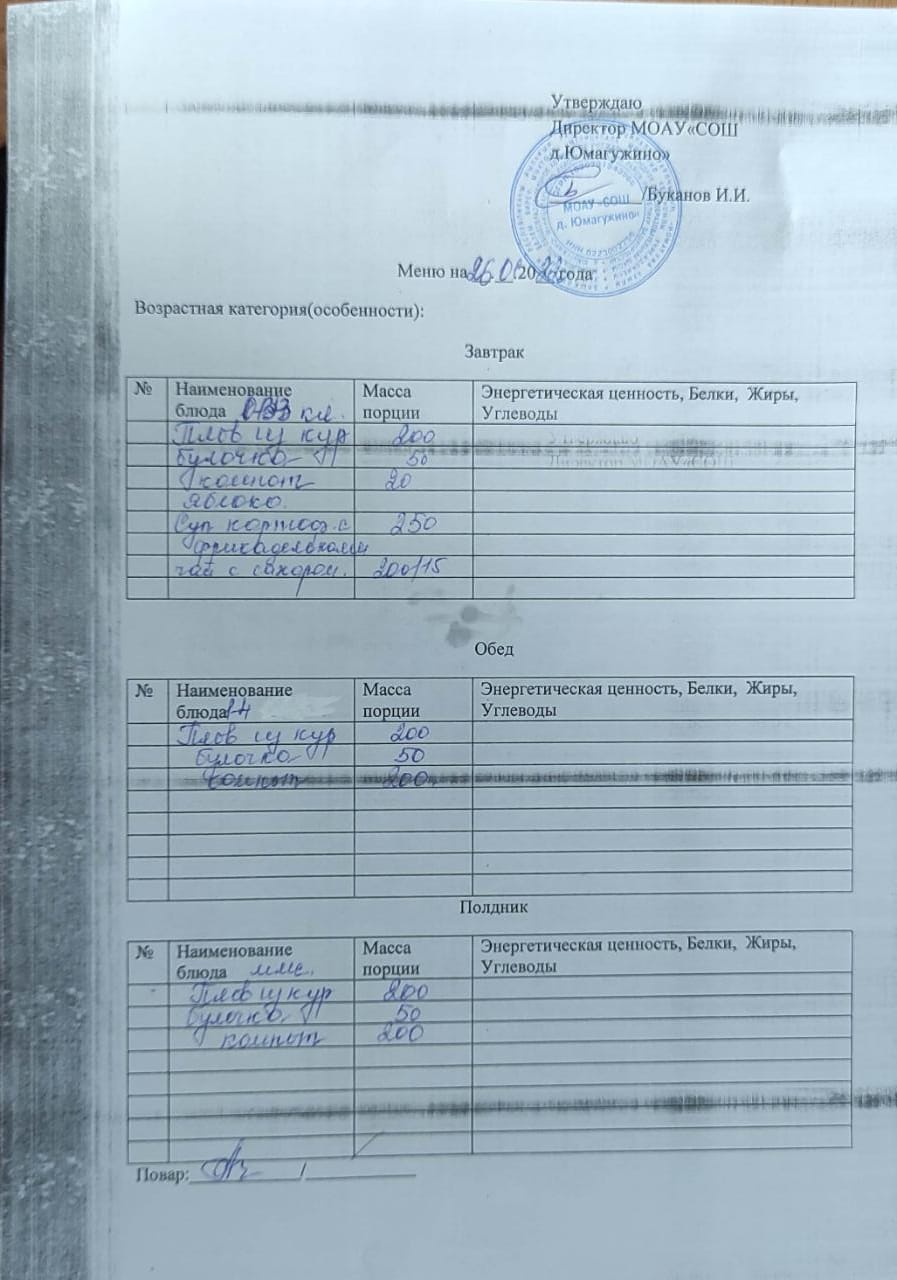 Утверждаю
Директор МОАУ«СОШ
д.Юмагужино»
/Буканов И.И.
МОАУ «СОШ
д. Юмагужино»
Меню на 26.0 .20 года
Возрастная категория(особенности):
Завтрак
№ Наименование Масса Энергетическая ценность, Белки, Жиры,
блюда ОВЗ кл. порции Углеводы
Плов из кур 200
булочка 50
компот 20
яблоко.
Суп картоф. с 250
фрикадельками
чай с сахаром. 200/15
Обед
№ Наименование Масса Энергетическая ценность, Белки, Жиры,
блюда 1-4 порции Углеводы
Плов из кур 200
булочка 50
компот 200
Полдник
№ Наименование Масса Энергетическая ценность, Белки, Жиры,
блюда порции Углеводы
Плов из кур 200
булочка 50
компот 200
Повар: /